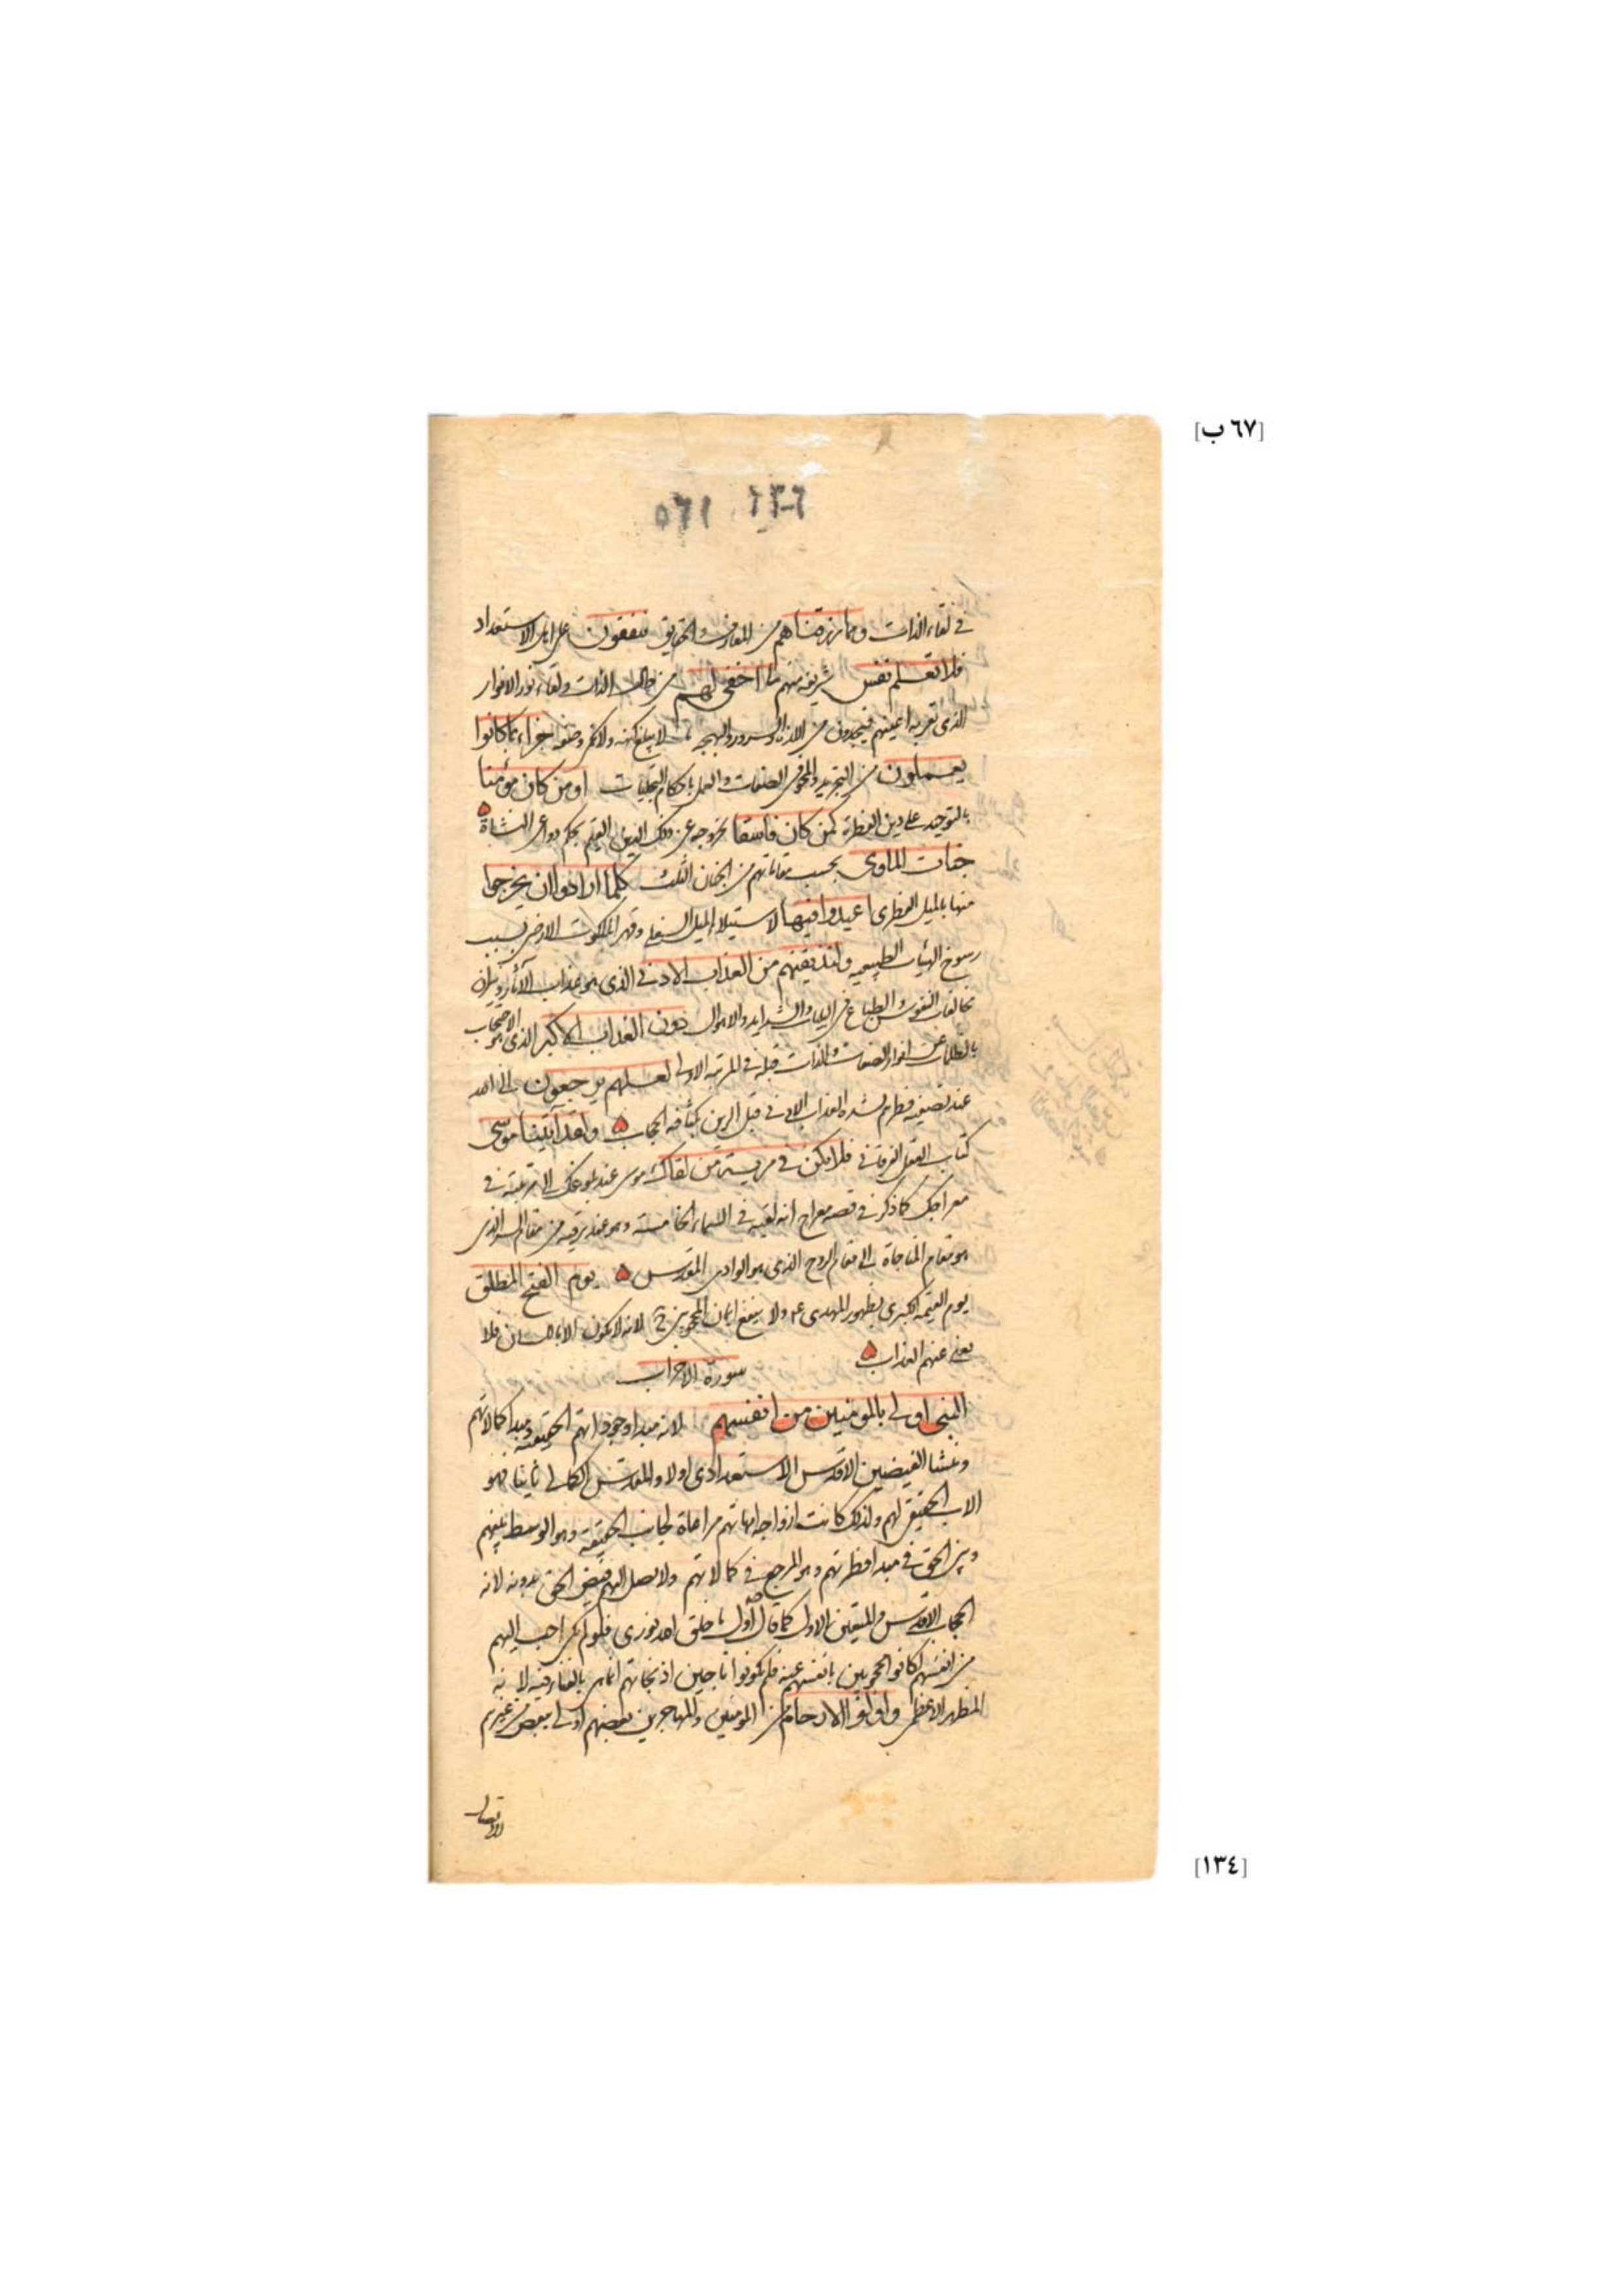 [٦٧ ب]
في لقاء الذات ومما رزقناهم من المعارف والحقايق ينفقون على اهل الاستعداد
فلا تعلم نفس شريفة منهم ما اخفى لهم من جمال الذات ولقاء نور الانوار
الذى تقر به اعينهم فيجدون من اللذة والسرور والبهجة ما لا يبلغ كنهه ولا يمكن وصفه جزاء بما كانوا
يعملون من التجريد والمحو في الصفات والعمل باحكام التجليات او من كان مؤمنا
بالتوحيد على دين الفطرة كمن كان فاسقا بخروجه عن ذلك الدين القيم بحكم دواعى النشأة
جنات الماوى بحسب مقاماتهم من الجنان الثلث كلما ارادوا ان يخرجوا
منها بالميل الفطرى اعيدوا فيها لاستيلاء الميل السفلى وقهر الملكوت الارضى بسبب
رسوخ الهيئات الطبيعية ولنذيقنهم من العذاب الادنى الذى هو عذاب الآثار ونيران
مخالفات النفوس والطباع في البليات والشدايد والاهوال دون العذاب الاكبر الذى هو الاحتجاب
بالظلمات عن انوار الصفات والذات قبله في المرتبة الاولى لعلهم يرجعون الى الله
عند تصفية فطرهم بشدة العذاب الادنى قبل الرين بكثافة الحجاب ولقد آتينا موسى
كتاب العقل الفرقاني فلا تكن في مرية من لقائك موسى عند بلوغك الى مرتبته في
معراجك كما ذكر في قصة معراج انه لقيه في السماء الخامسة وهو عند ترقيه من مقام السر الذى
هو مقام المناجاة الى مقام الروح الذى هو الوادى المقدس يوم الفتح المطلق
يوم القيمة الكبرى بظهور المهدى ع ولا ينفع ايمان المحجوبين ح لانه لا يكون الا باللسان فلا
يغنى عنهم العذاب
سورة الاحزاب
النبى اولى بالمومنين من انفسهم لانه مبدا وجوداتهم الحقيقية ومبدا كمالاتهم
ومنشا الفيضين الاقدس الاستعدادى اولا والمقدس الكمالى ثانيا فهو
الاب الحقيقى لهم ولذلك كانت ازواجه امهاتهم مراعاة لجانب الحقيقة وهو الوسط بينهم
وبين الحق في مبدا فطرتهم وهو المرجع في كمالاتهم ولا يصل اليهم فيض الحق بدونه لانه
الحجاب الاقدس والمتيقن الاول كما قال اول ما خلق الله نورى فلو لم يكن احب اليهم
من انفسهم لكانوا محجوبين بانفسهم عنه فلم يكونوا ناجين اذ نجاتهم انما هى بالفناء فيه لانه
المظهر الاعظم واولوا الارحام من المومنين والمهاجرين بعضهم اولى ببعض من غيرهم
[١٣٤]